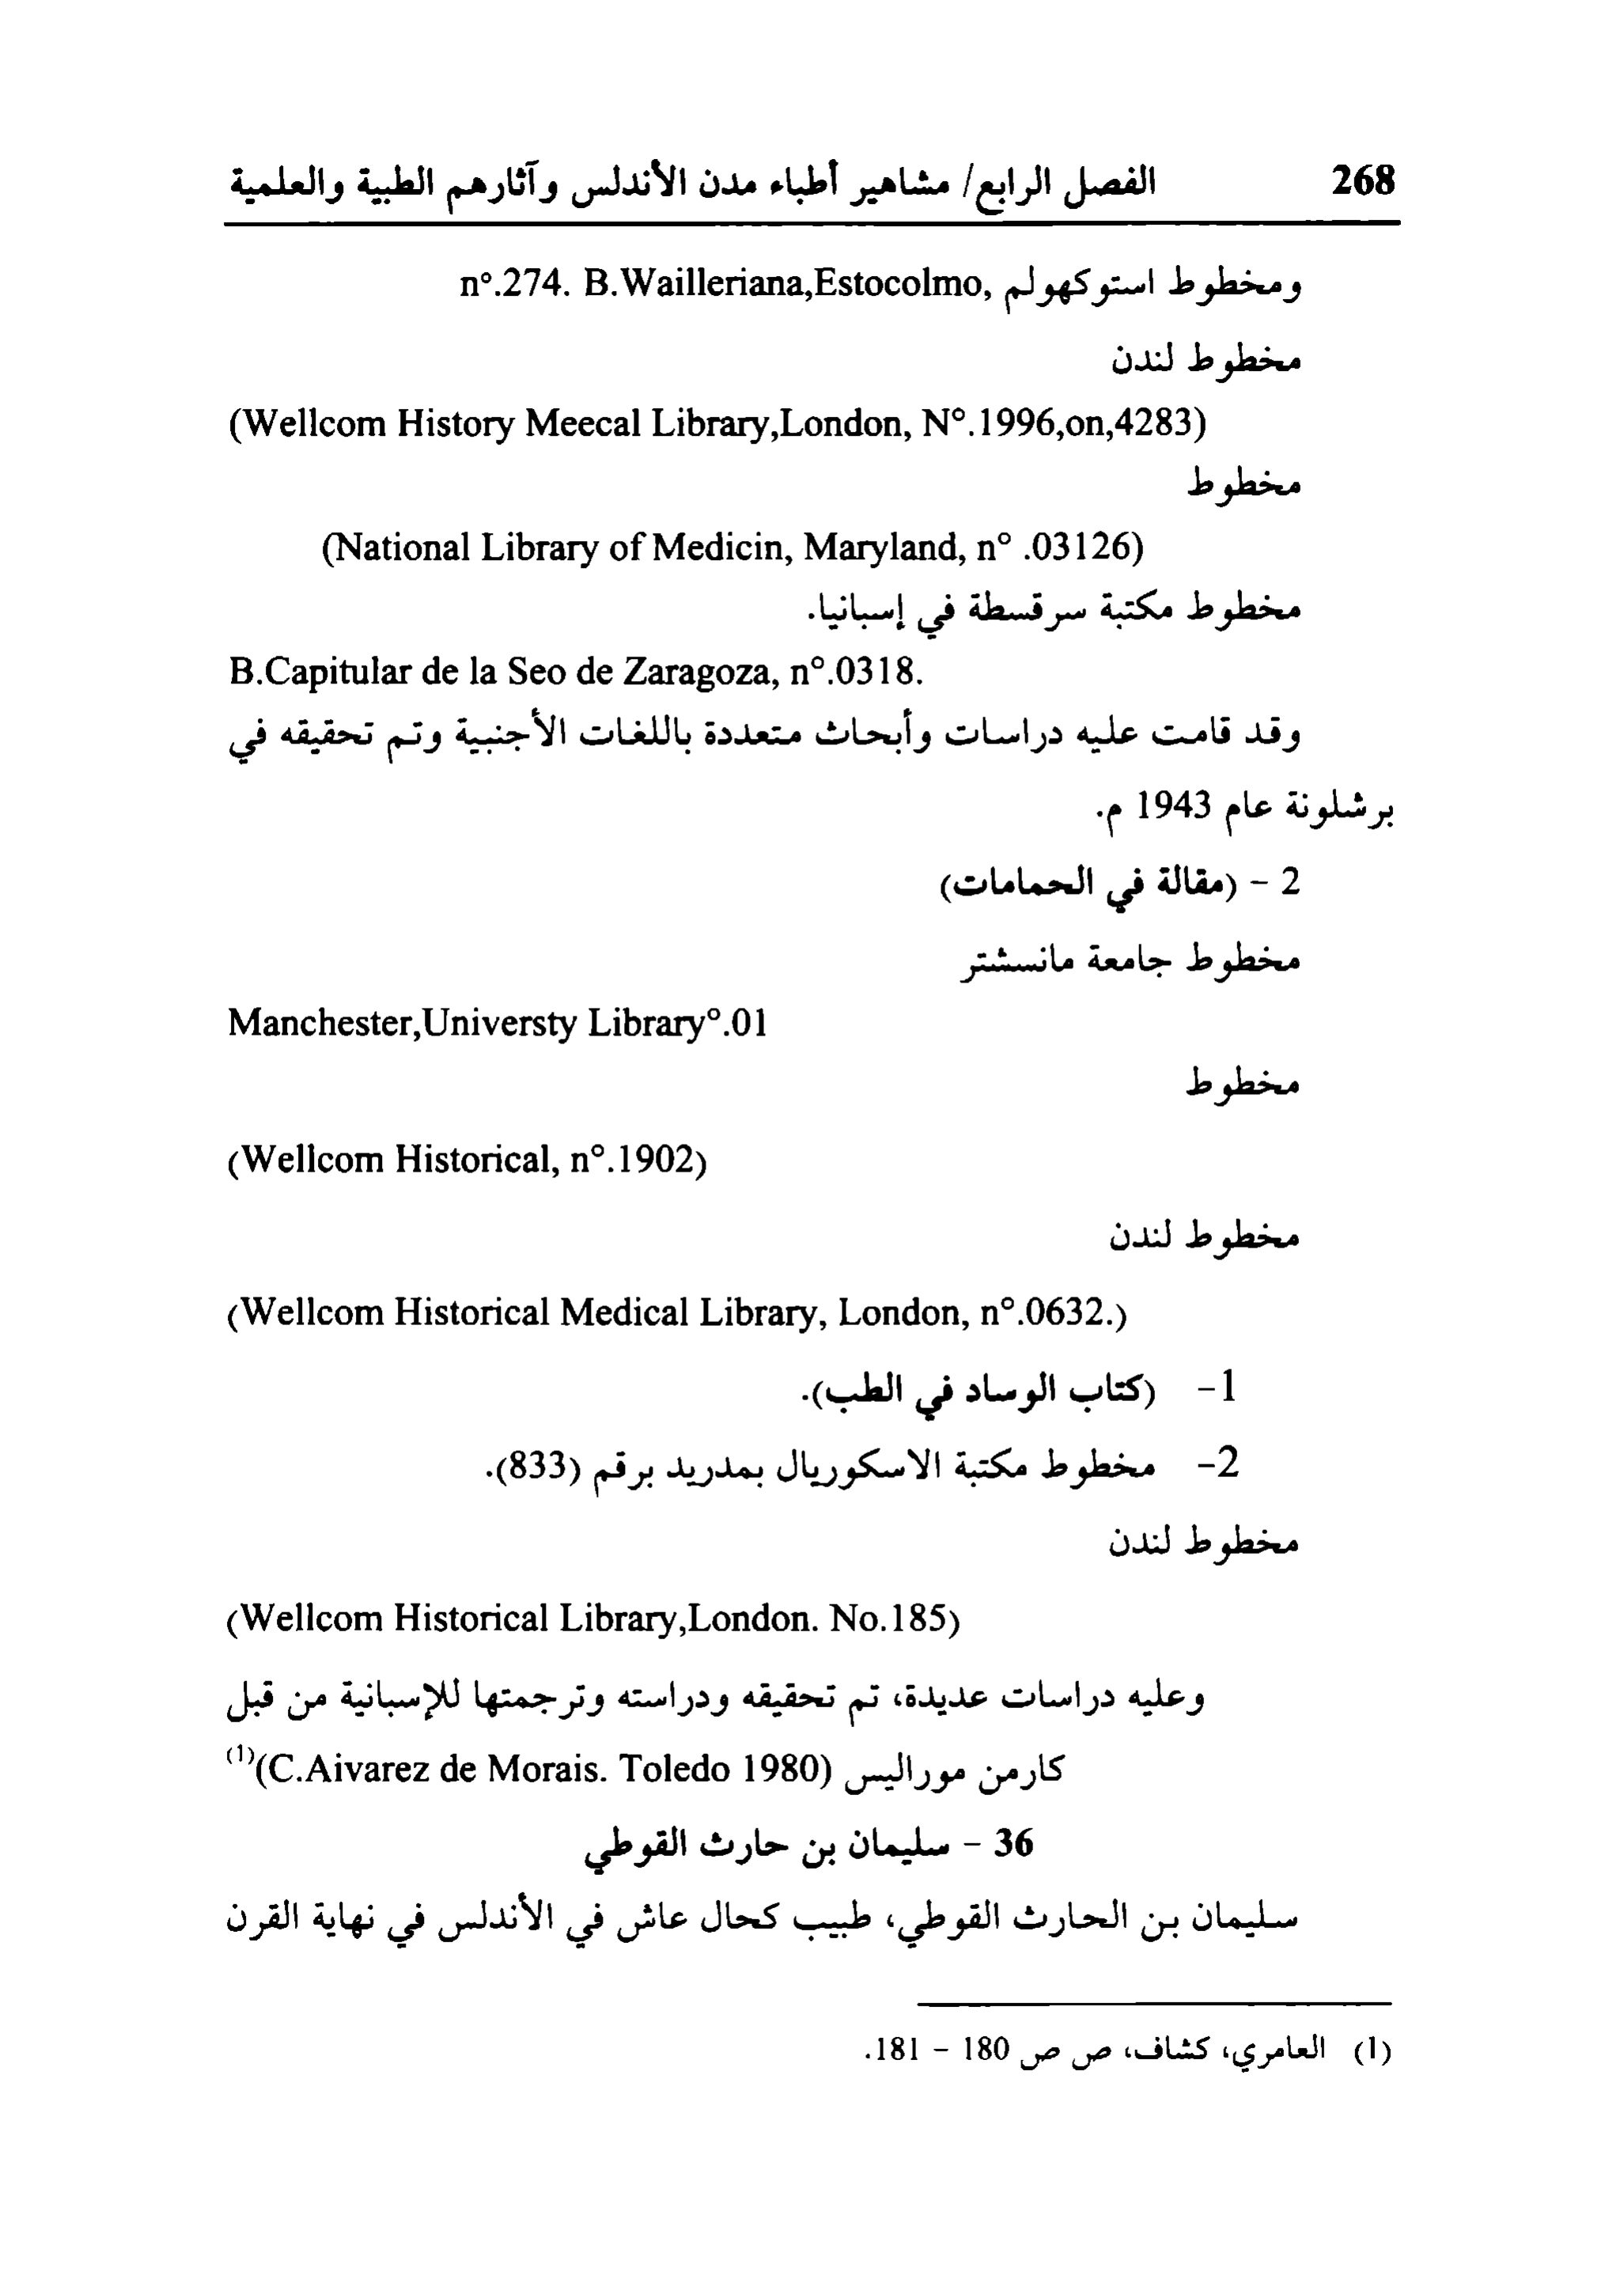 268 الفصل الرابع/ مشاهير أطباء مدن الأندلس وآثارهم الطبية والعلمية
ومخطوط استوكهولم n°.274. B.Wailleriana,Estocolmo,
مخطوط لندن
(Wellcom History Meecal Library,London, N°.1996,on,4283)
مخطوط
(National Library of Medicin, Maryland, n° .03126)
مخطوط مكتبة سرقسطة في إسبانيا.
B.Capitular de la Seo de Zaragoza, n°.0318.
وقد قامت عليه دراسات وأبحاث متعددة باللغات الأجنبية وتم تحقيقه في
برشلونة عام 1943 م.
2 - (مقالة في الحمامات)
مخطوط جامعة مانسشتر
Manchester,Universty Library°.01
مخطوط
(Wellcom Historical, n°.1902)
مخطوط لندن
(Wellcom Historical Medical Library, London, n°.0632.)
1- (كتاب الوساد في الطب).
2- مخطوط مكتبة الاسكوريال بمدريد برقم (833).
مخطوط لندن
(Wellcom Historical Library,London. No.185)
وعليه دراسات عديدة، تم تحقيقه ودراسته وترجمتها للإسبانية من قبل
كارمن موراليس (C.Aivarez de Morais. Toledo 1980)(1)
36 - سليمان بن حارث القوطي
سليمان بن الحارث القوطي، طبيب كحال عاش في الأندلس في نهاية القرن
(1) العامري، كشاف، ص ص 180 - 181.